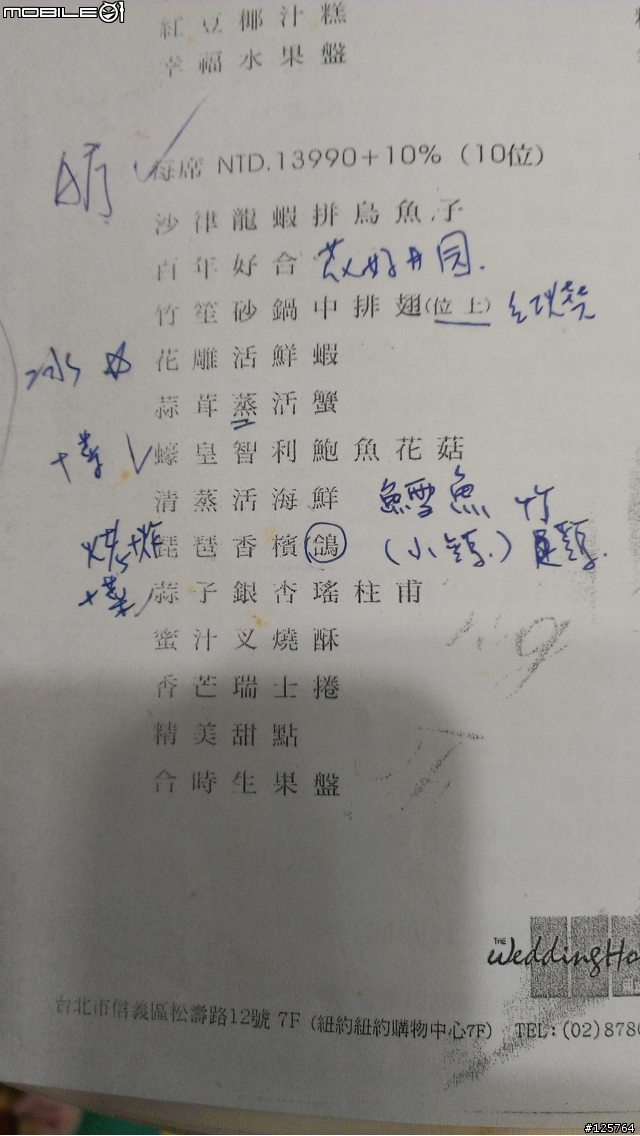 MOBILE01
紅豆椰汁糕
幸福水果盤
每席 NTD.13990+10% (10位)
沙律龍蝦拼烏魚子
百年好合
竹笙砂鍋中排翅(位上) 紅燒
花雕活鮮蝦
蒜茸蒸活蟹
蠔皇智利鮑魚花菇
清蒸活海鮮 鱈魚
琵琶香檳鴿
蒜子銀杏瑤柱甫
蜜汁叉燒酥
香芒瑞士捲
精美甜點
合時生果盤
THE WeddingHo
台北市信義區松壽路12號 7F (紐約紐約購物中心7F) TEL:(02)8780
#125764